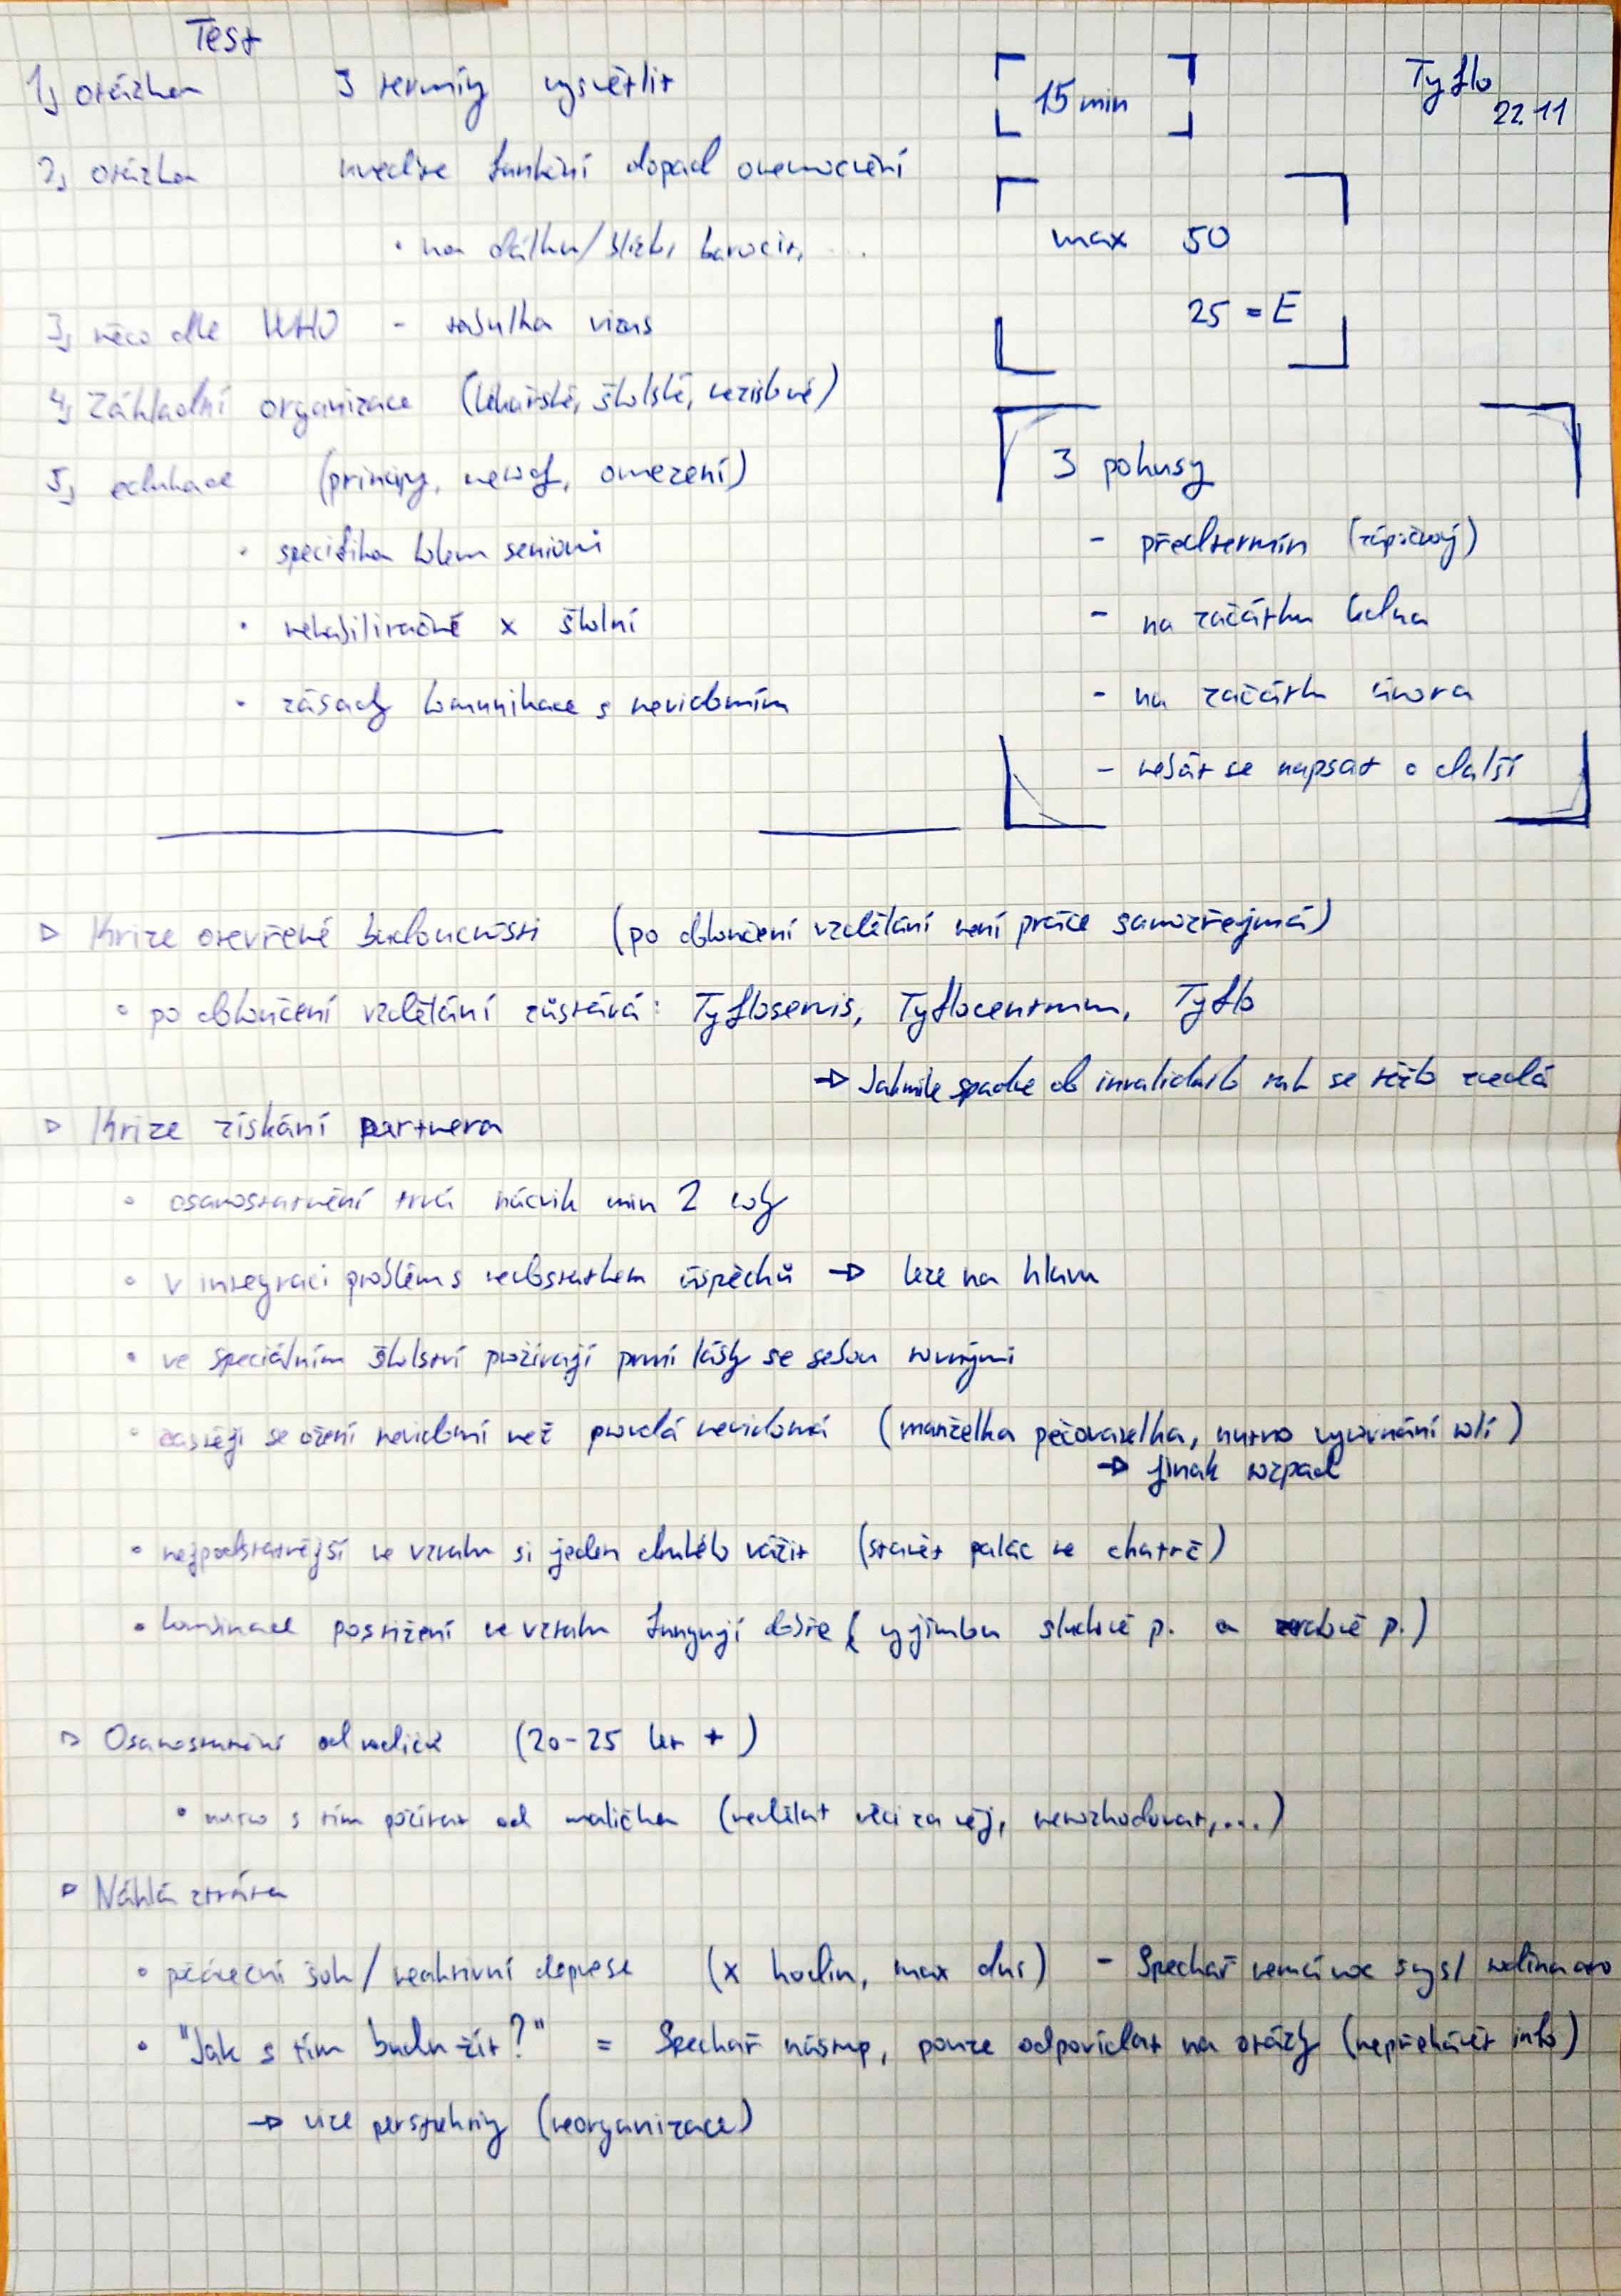 Test
Tyflo
22.11
1, otázka 3 termíny vysvětlit
15 min
2, otázka uveďte funkční dopad onemocnění
• na dálku/blízko, barvocit, ...
max 50
25 = E
3, něco dle WHO - tabulka vizus
4, Základní organizace (lékařské, školské, neziskové)
5, edukace (principy, metody, omezení)
• specifika kolem seniorů
• rehabilitačně x školní
• zásady komunikace s nevidomím
3 pokusy
- předtermín (zápočtový)
- na začátku ledna
- na začátku února
- nebát se napsat o další
▷ Krize otevřené budoucnosti (po dokončení vzdělání není práce samozřejmá)
• po dokončení vzdělání zůstává: Tyfloservis, Tyflocentrum, Tyflo
→ Jakmile spadne do invalidního tak se těžko zvedá
▷ Krize získání partnera
• osamostatnění trvá nácvik min 2 roky
• v integraci problém s nedostatkem úspěchů → leze na hlavu
• ve speciálním školství prožívají první lásky se sobou rovnými
• častěji se ožení nevidomí než provdá nevidomá (manželka pečovatelka, nutno vyrovnání rolí)
→ jinak rozpad
• nejpodstatnější ve vztahu si jeden druhého vážit (stavět palác ne chatrč)
• kombinace postižení ve vztahu fungují dobře (vyjímkou sluchově p. a zrakově p.)
▷ Osamostatnění od rodičů (20-25 let +)
• nutno s tím počítat od malička (nedělat věci za něj, nerozhodovat,...)
▷ Náhlá ztráta
• počáteční šok/reaktivní deprese (x hodin, max dní) - Specař nemá moc smysl
• "Jak s tím budu žít?" = Specař nástup, pouze odpovídat na otázky (nepřehánět info)
→ více perspektivy (reorganizace)